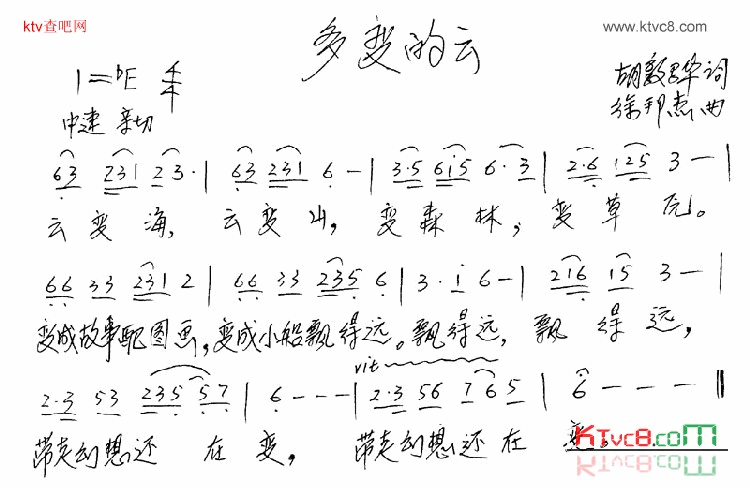 ktv查吧网
www.ktvc8.com
多变的云
1=♭E 4/4
胡敦骅词
徐邦杰曲
中速 亲切
63 231 23· | 63 231 6 – | 3·5 615 6·3 | 2·6 125 3 – |
云变海，云变山，变森林，变草原。
66 33 2312 2 | 66 33 235 6 | 3·i 6 – | 216 15 3 – |
变成故事配图画，变成小船飘得远。飘得远，飘得远，
rit
2·3 53 235 57 | 6 – – – | 2·3 56 76 5 | 6 – – – ‖
带走幻想还在变，带走幻想还在变。
KTvc8.com